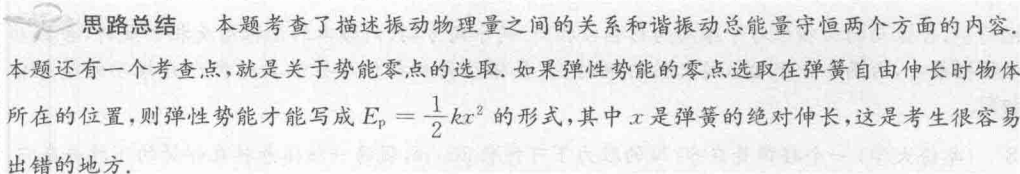 思路总结 本题考查了描述振动物理量之间的关系和谐振动总能量守恒两个方面的内容.
本题还有一个考查点,就是关于势能零点的选取.如果弹性势能的零点选取在弹簧自由伸长时物体
所在的位置,则弹性势能才能写成 $E_p = \frac{1}{2}kx^2$ 的形式,其中 x 是弹簧的绝对伸长,这是考生很容易
出错的地方.